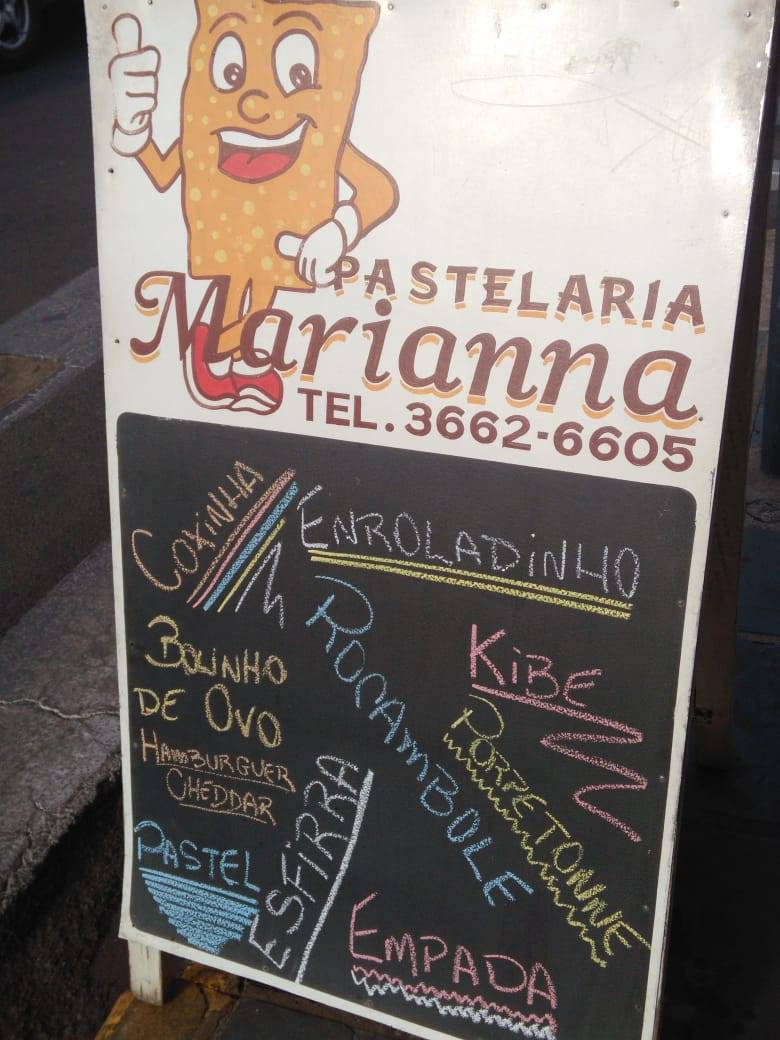 PASTELARIA
Marianna
TEL. 3662-6605
COXINHA
ENROLADINHO
BOLINHO
DE OVO
HAMBURGUER
CHEDDAR
ROCAMBOLE
KIBE
PORPETONNE
PASTEL
ESFIRRA
EMPADA